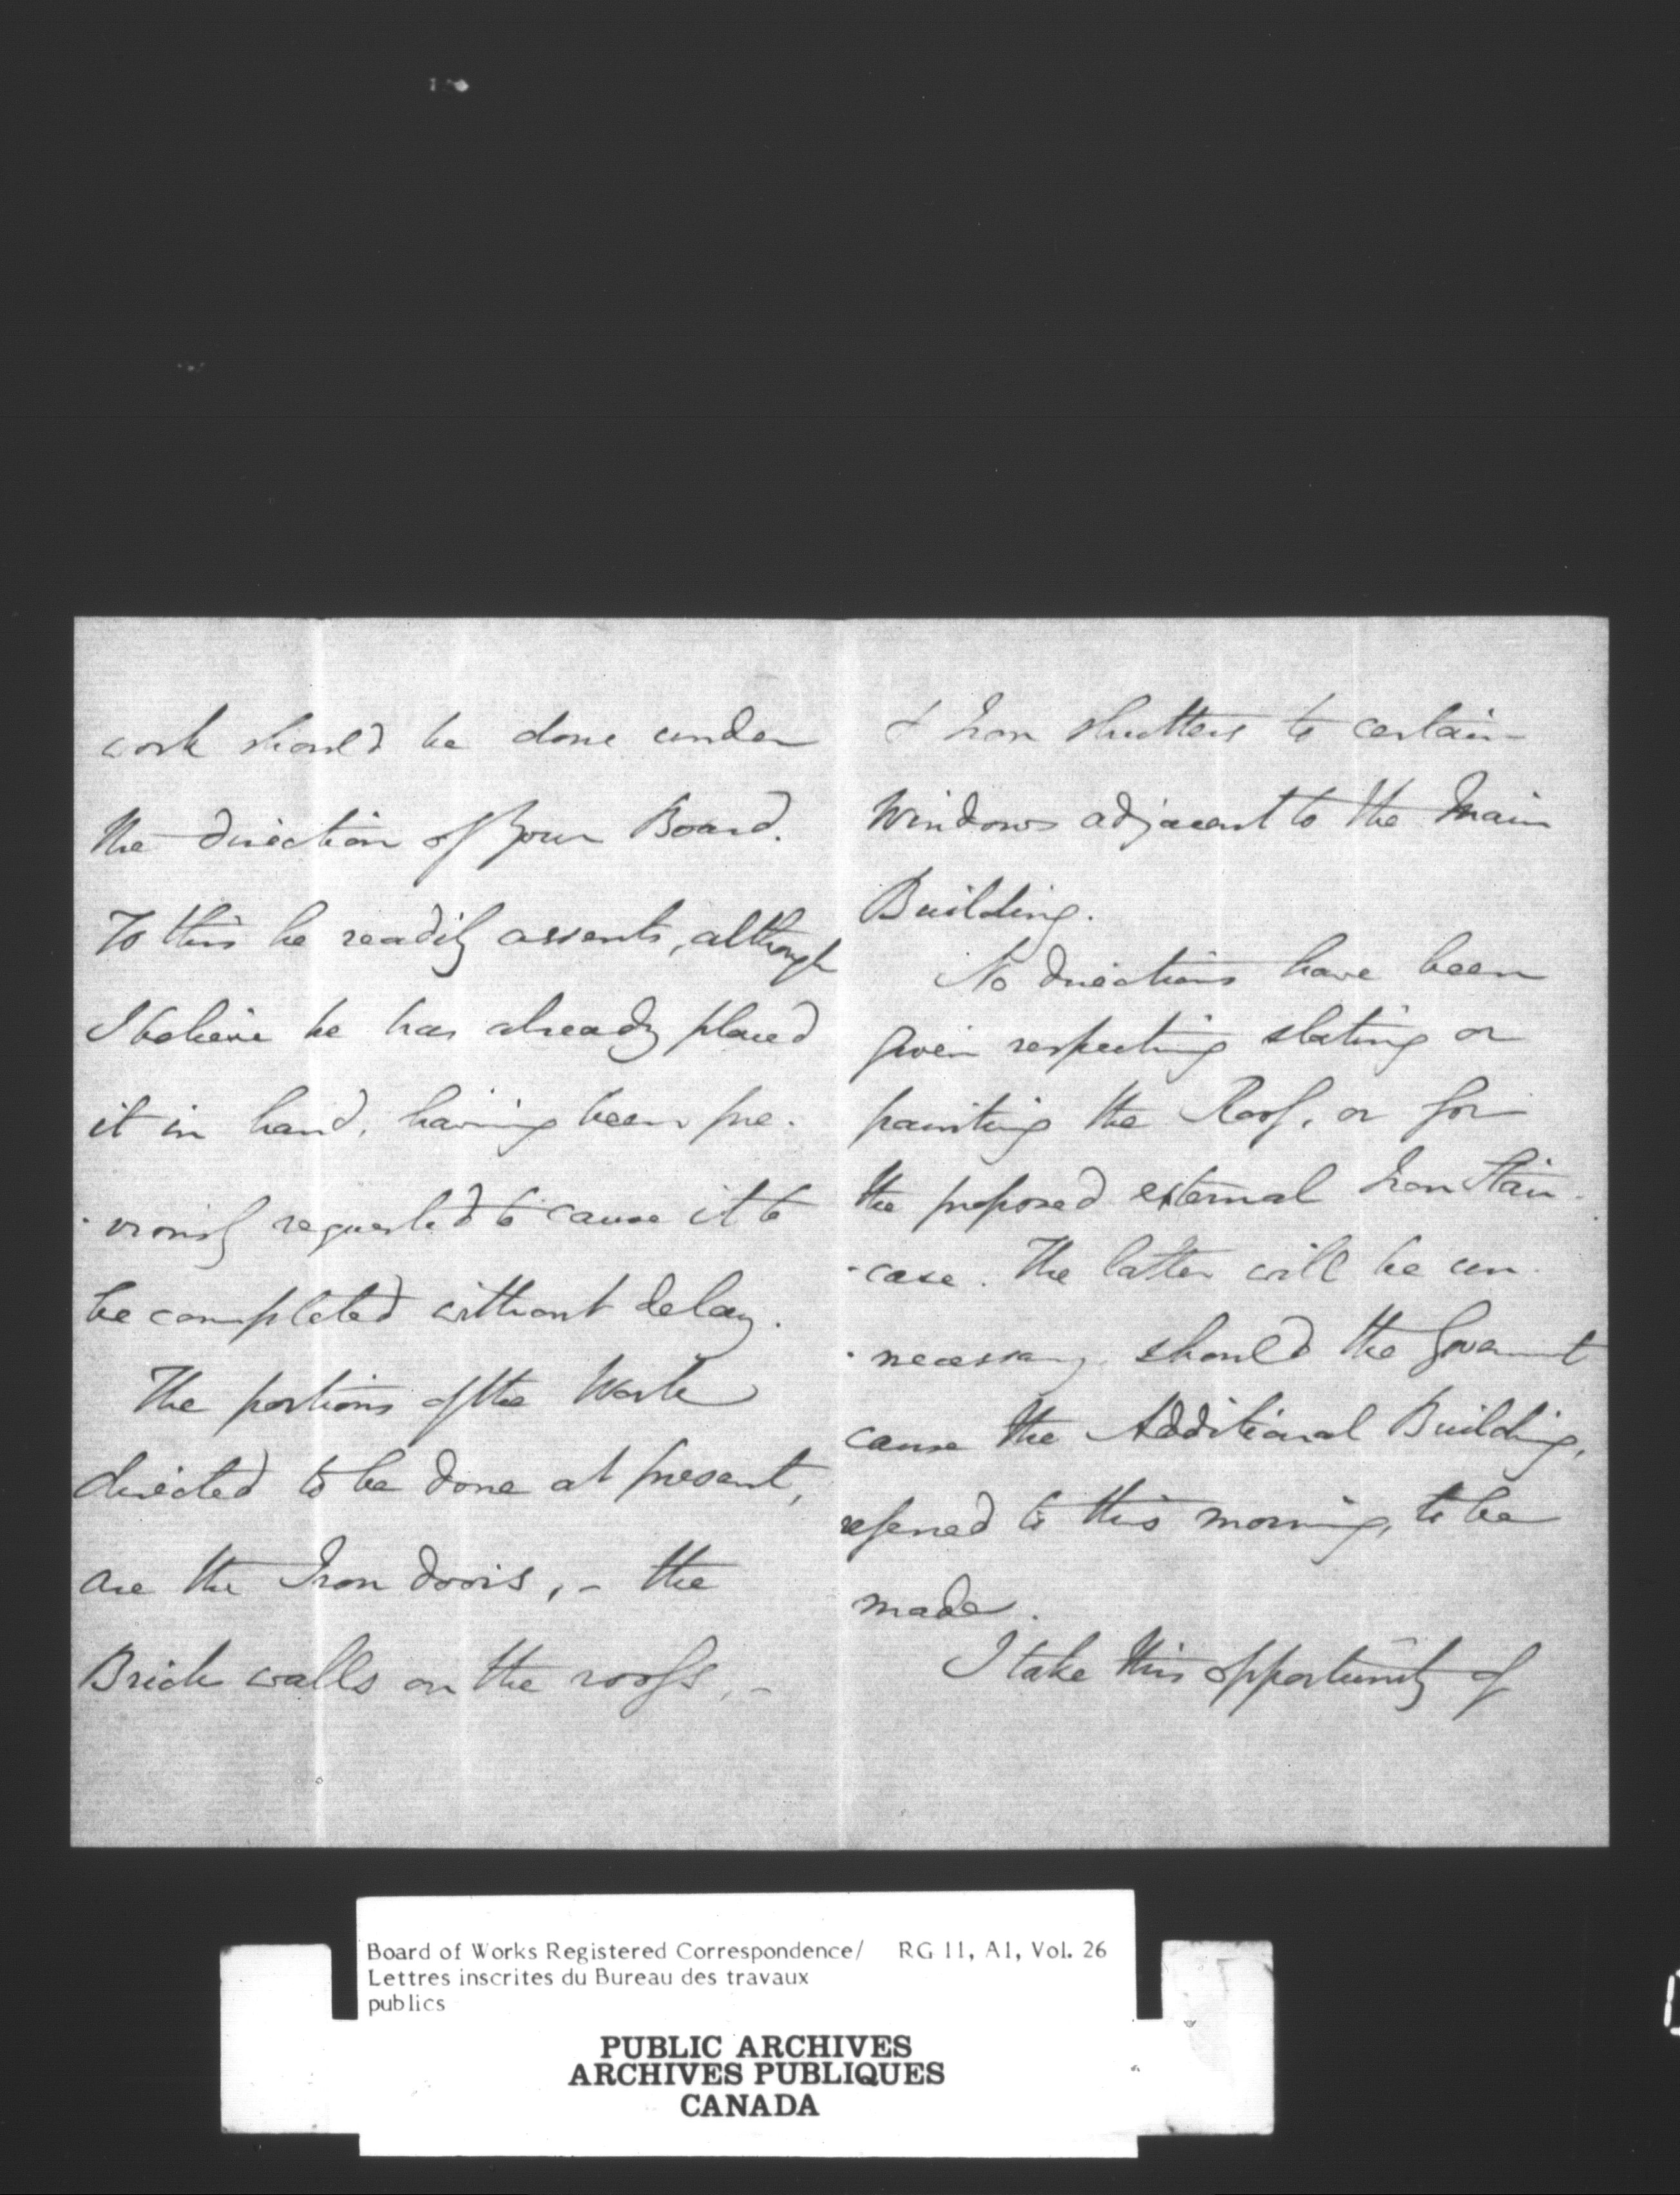 work should be done under
the direction of your Board.
To this he readily assents, although
I believe he has already placed
it in hand, having been pre-
-viously requested to cause it to
be completed without delay.
The portions of the Work
directed to be done at present,
are the Iron doors, - the
Brick walls on the roofs, -
& Iron shutters to certain
Windows adjacent to the Main
Building.
No directions have been
given respecting slating or
painting the Roof, or for
the proposed external Iron Stair-
-case. The latter will be un-
-necessary, should the Goverment
cause the Additional Building,
referred to this morning, to be
made.
I take this opportunity of
Board of Works Registered Correspondence/ RG 11, A1, Vol. 26
Lettres inscrites du Bureau des travaux
publics
PUBLIC ARCHIVES
ARCHIVES PUBLIQUES
CANADA